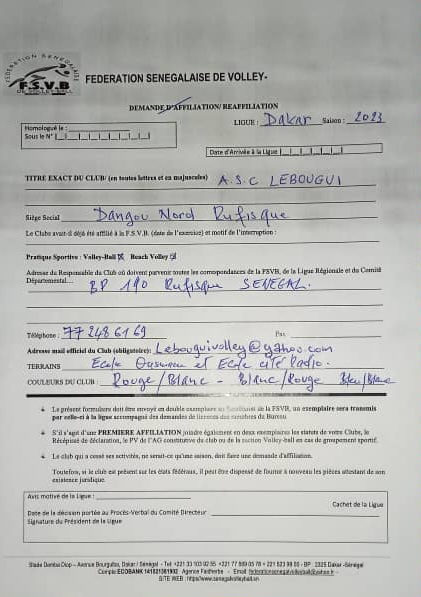 FEDERATION SENEGALAISE
F.S.V.B
DE VOLLEY-BALL
FEDERATION SENEGALAISE DE VOLLEY-
DEMANDE D'AFFILIATION/ REAFFILIATION
LIGUE : Dakar Saison : 2023
Homologué le :
Sous le N°
Date d'Arrivée à la Ligue
TITRE EXACT DU CLUB/ (en toutes lettres et en majuscules) A.S.C LEBOUGUI
Siège Social Dangou Nord Rufisque
Le Clubs avait-il déjà été affilié à la F.S.V.B. (date de l'exercice) et motif de l'interruption :
Pratique Sportive : Volley-Ball Beach Volley
Adresse du Responsable du Club où doivent parvenir toutes les correspondances de la FSVB, de la Ligue Régionale et du Comité
Départemental.... BP 190 Rufisque SENEGAL.
Téléphone : 77 248 61 69 Fax
Adresse mail officiel du Club (obligatoire): Lebouguivolley@yahoo.com
TERRAINS Ecole Ousmane et Ecole cité Radio.
COULEURS DU CLUB : Rouge/Blanc - Blanc/Rouge Bleu/Blanc
Le présent formulaire doit être envoyé en double exemplaire au de la FSVB, un exemplaire sera transmis
par celle-ci à la ligue accompagné des demandes de licences des membres du Bureau.
S'il s'agit d'une PREMIERE AFFILIATION joindre également en deux exemplaires les statuts de votre Clubs, le
Récépissé de déclaration, le PV de l'AG constitutive du club ou de la section Volley-ball en cas de groupement sportif.
Le club qui a cessé ses activités, ne serait-ce qu'une saison, doit faire une demande d'affiliation.
Toutefois, si le club est présent sur les états fédéraux, il peut être dispensé de fournir à nouveau les pièces attestant de son
existence juridique.
Avis motivé de la Ligue :
Cachet de la Ligue
Date de la décision portée au Procès-Verbal du Comité Directeur :
Signature du Président de la Ligue
Stade Demba Diop – Avenue Bourguiba, Dakar / Sénégal - Tel +221 33 103 92 55 +221 77 569 05 78 + 221 523 98 50 - BP : 2325 Dakar -Sénégal
Compte ECOBANK 141021361902 Agence Faidherbe - Email federationsenegalvolleyball@yahoo.fr -
SITE WEB : https//www.senegalvolleyball.sn